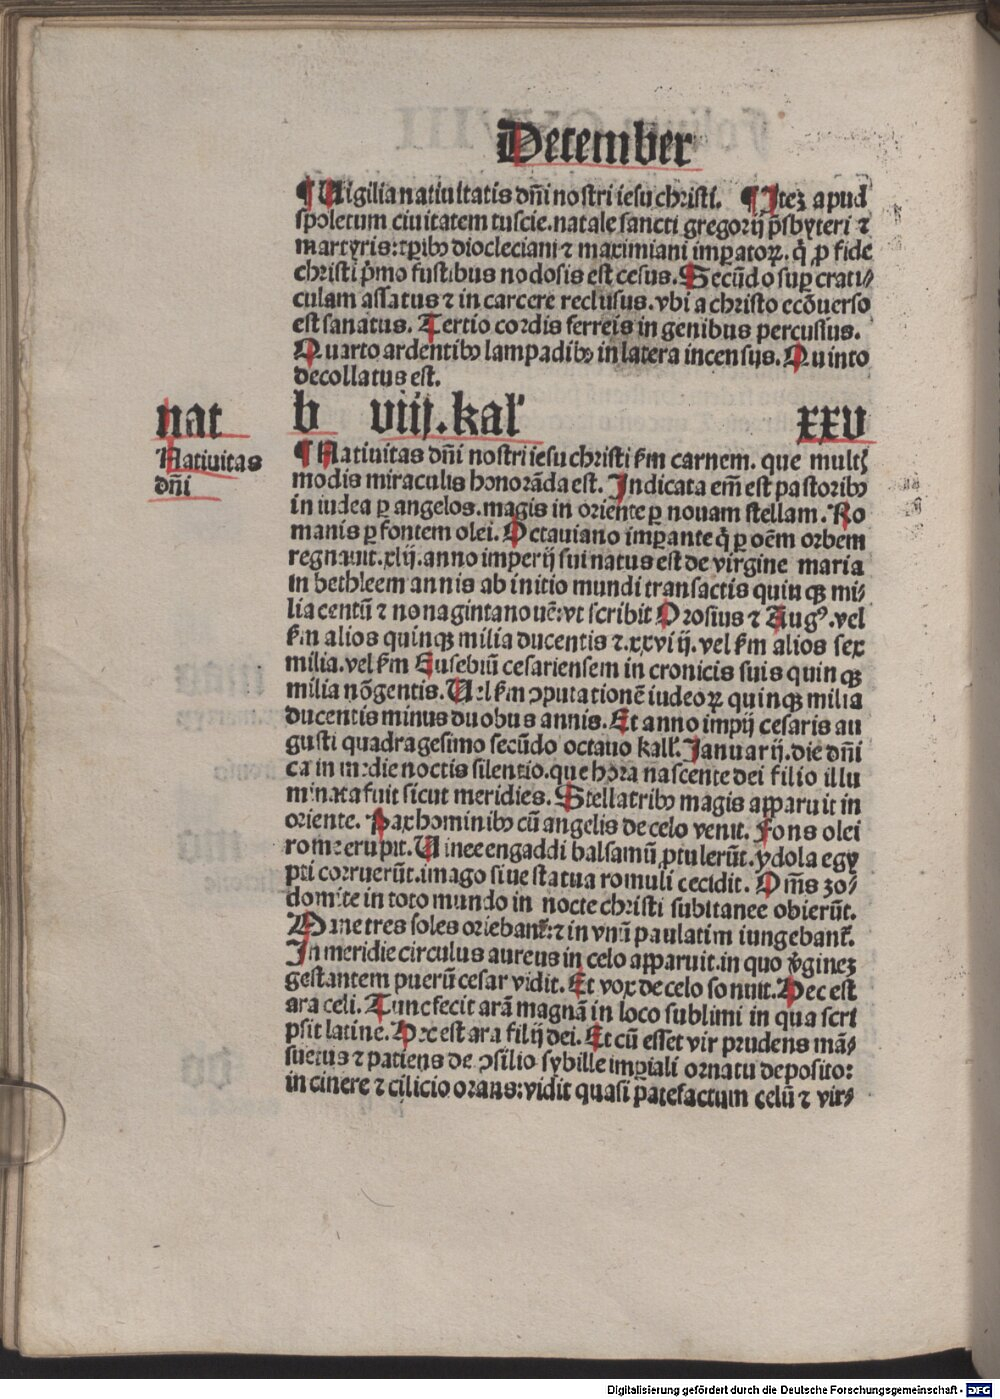 December
¶ Vigilia natiuitatis dn̄i nostri iesu christi. ¶ Itez apud
spoletum ciuitatem tuscie.natale sancti gregorij p̄sbyteri ⁊
martyris:tꝑibꝰ diocleciani ⁊ maximiani imꝑatoꝝ. q̇ ꝓ fide
christi p̄mo fustibus nodosis est cesus. Secūdo suꝑ crati⸗
culam assatus ⁊ in carcere reclusus.vbi a christo ecōuerso
est sanatus. Tertio cordis ferreis in genibus percussus.
Quarto ardentibꝰ lampadibꝰ in latera incensus. Quinto
decollatus est.
nat b viij.kal' xxv
Natiuitas
dn̄i
¶ Natiuitas dn̄i nostri iesu christi ẜm carnem. que multꝭ
modis miraculis honorāda est. Indicata em̄ est pastoribꝰ
in iudea ꝑ angelos.magis in oriente ꝑ nouam stellam. Ro
manis ꝑ fontem olei. Octauiano imꝑante q̇ ꝑ oēm orbem
regnauit.xlij.anno imperij sui natus est de virgine maria
in bethleem annis ab initio mundi transactis quinqꝫ mi⸗
lia centū ⁊ nonagintanouē:vt scribit Orosius ⁊ Augꝰ.vel
ẜm alios quinqꝫ milia ducentis ⁊.xxviij. vel ẜm alios sex
milia.vel ẜm Eusebiū cesariensem in cronicis suis quinqꝫ
milia nōgentis. Vel ẜm ꝯputationē iudeoꝝ quinqꝫ milia
ducentis minus duobus annis. Et anno impij cesaris au
gusti quadragesimo secūdo octauo kall'. Januarij.die dn̄i
ca in medie noctis silentio.que hora nascente dei filio illu
minata fuit sicut meridies. Stella tribꝰ magis apparuit in
oriente. Pax hominibꝰ cū angelis de celo venit. Fons olei
rome erupit. Vinee engaddi balsamū ꝓtulerūt. ydola egy
pti corruerūt.imago siue statua romuli cecidit. Om̄s zo⸗
domite in toto mundo in nocte christi subitanee obierūt.
Mane tres soles oriebant̄:⁊ in vnū paulatim iungebant̄.
In meridie circulus aureus in celo apparuit.in quo v̇ginez
gestantem puerū cesar vidit. Et vox de celo sonuit. Hec est
ara celi. Tunc fecit arā magnā in loco sublimi in qua scri
psit latine. Hec est ara filij dei. Et cū esset vir prudens mā⸗
suetus ⁊ patiens de ꝯsilio sybille imꝑiali ornatu deposito:
in cinere ⁊ cilicio orans:vidit quasi p̄atefactum celū ⁊ vir⸗
Digitalisierung gefördert durch die Deutsche Forschungsgemeinschaft - DFG